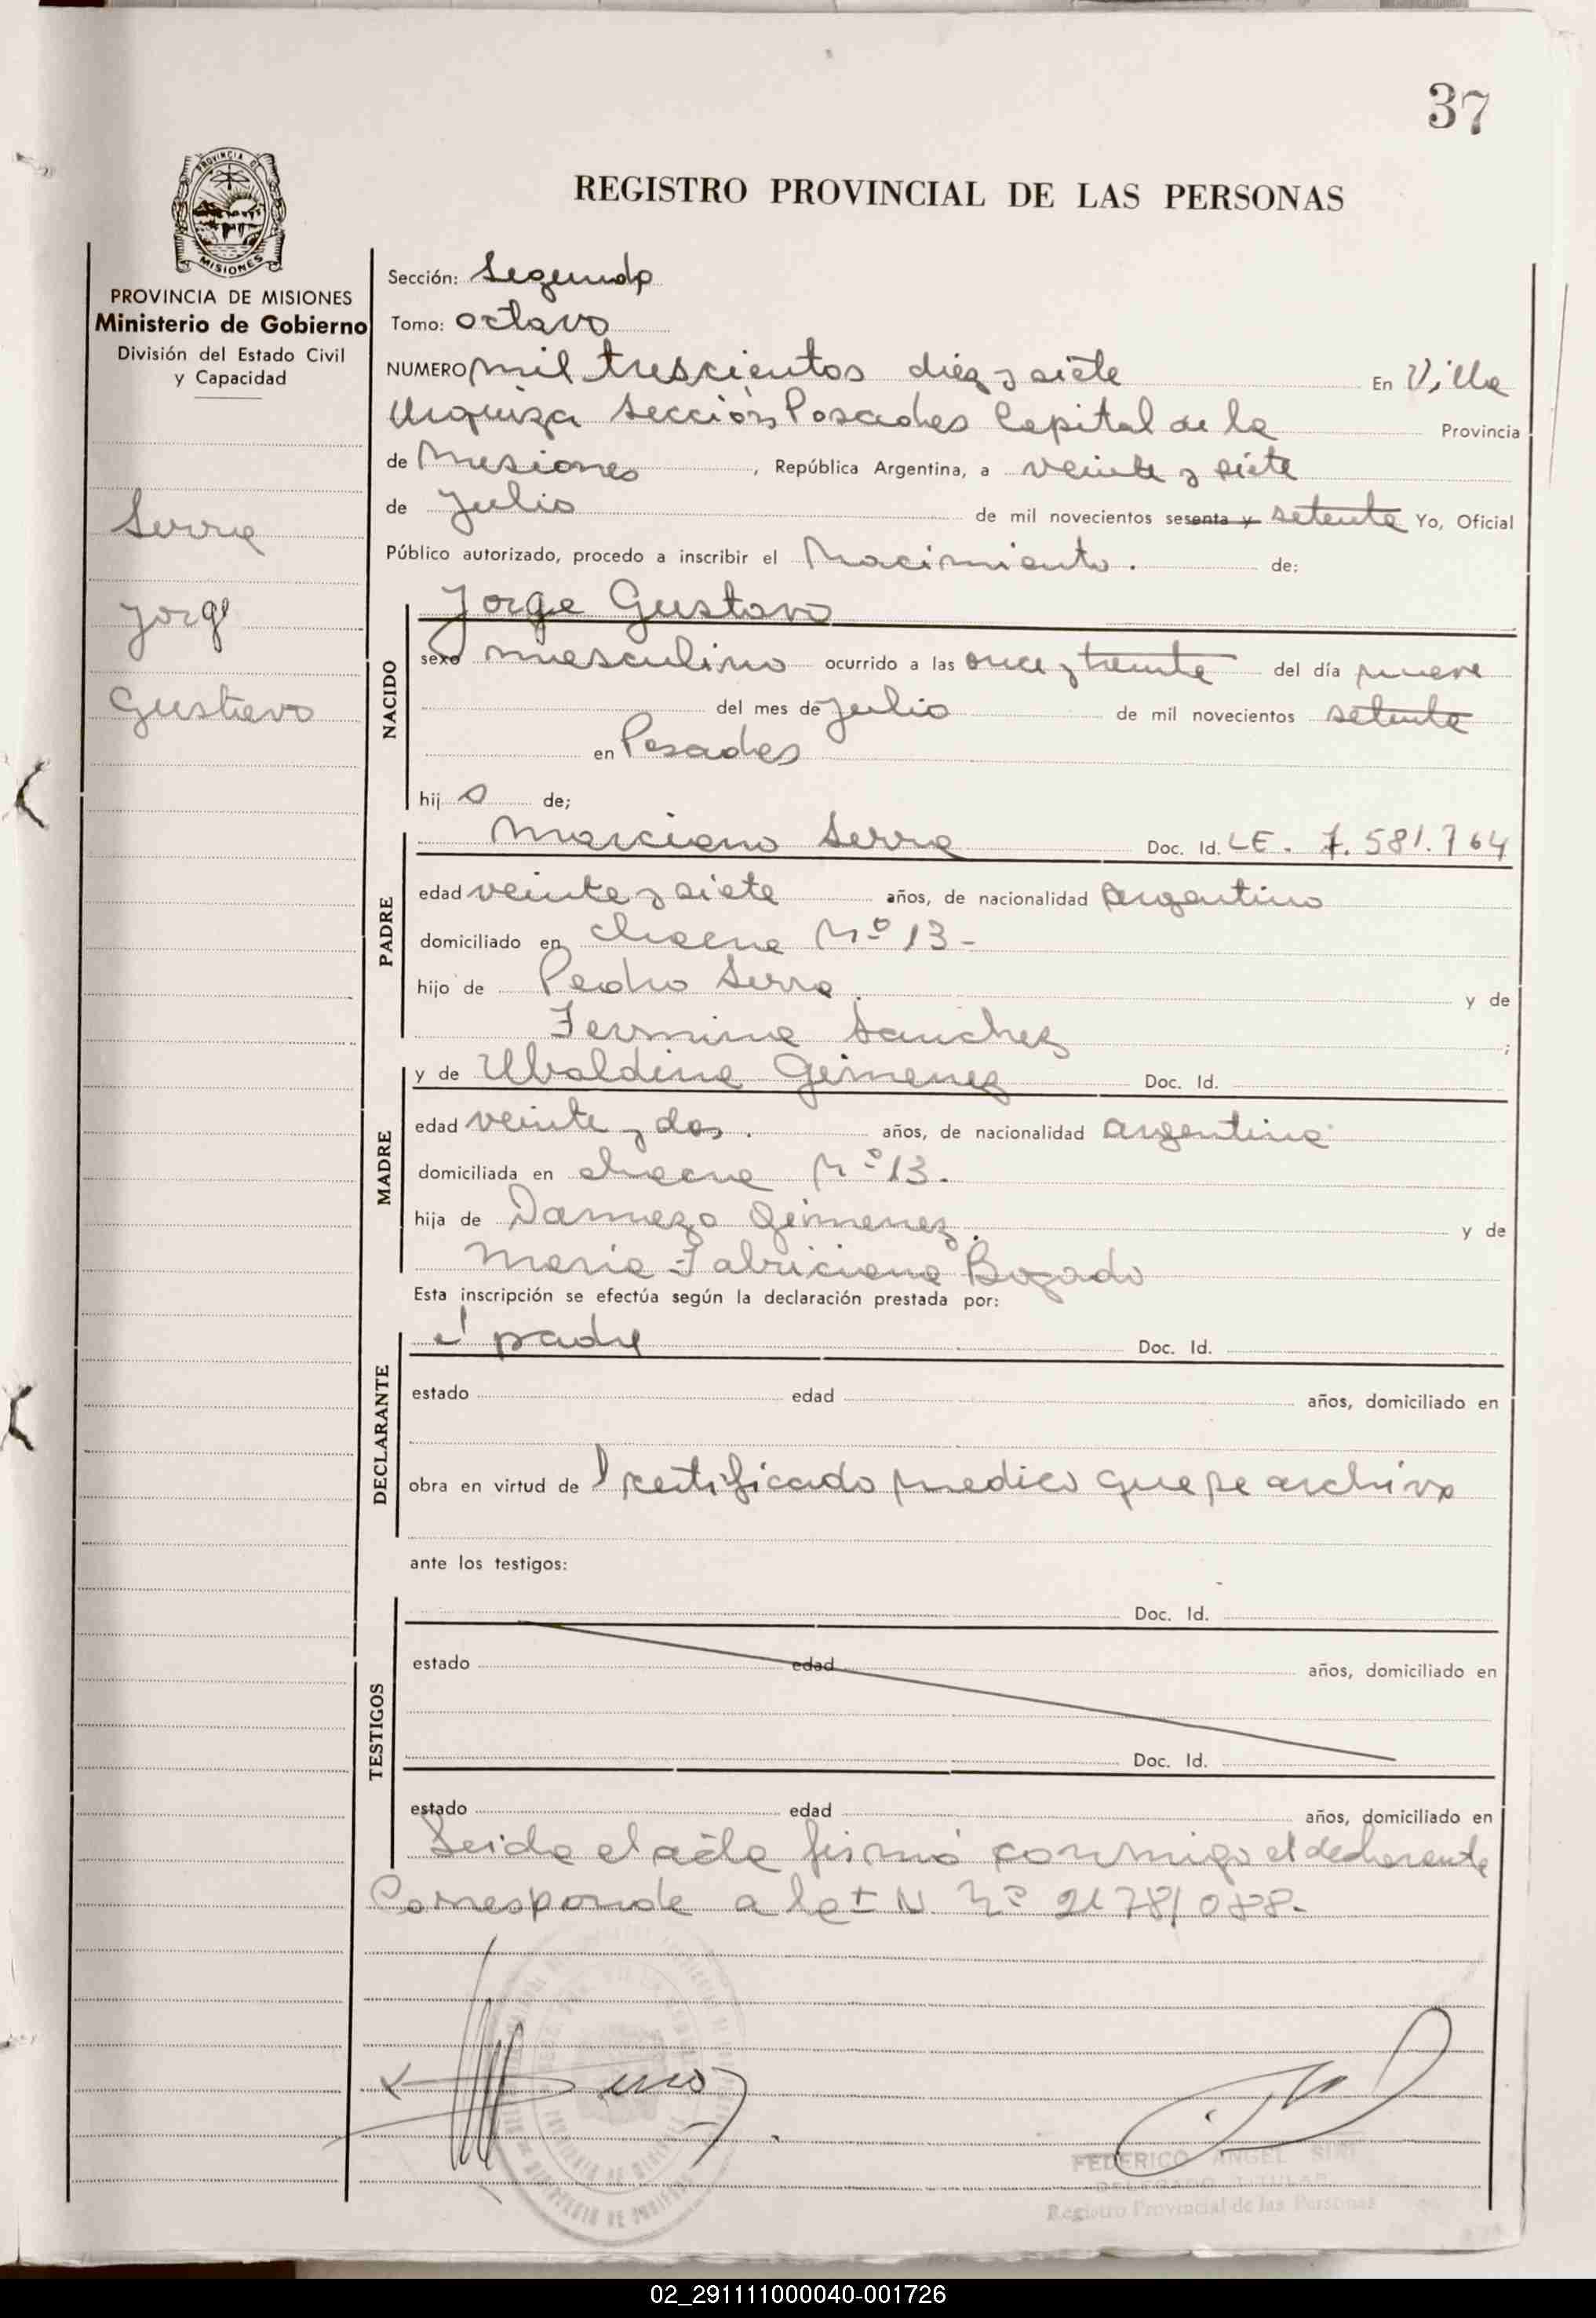 37
REGISTRO PROVINCIAL DE LAS PERSONAS
PROVINCIA DE MISIONES
MISIONES
PROVINCIA DE MISIONES
Ministerio de Gobierno
División del Estado Civil
y Capacidad
Serra
Jorge
Gustavo
Sección: Segunda
Tomo: octavo
NUMERO mil trescientos diez y siete En Villa
Urquiza Sección Posadas Capital de la Provincia
de Misiones, República Argentina, a veinte y siete
de Julio de mil novecientos sesenta y setenta Yo, Oficial
Público autorizado, procedo a inscribir el Nacimiento. de:
NACIDO
Jorge Gustavo
sexo masculino ocurrido a las once y treinta del día nueve
del mes de Julio de mil novecientos setenta
en Posadas
hij o de;
PADRE
Marciano Serra Doc. Id. LE. 7.581.764
edad veinte y siete años, de nacionalidad Argentino
domiciliado en chacra Nº 13-
hijo de Pedro Serra. y de
Fermina Sanchez ;
MADRE
y de Ubaldina Gimenez Doc. Id.
edad veinte y dos. años, de nacionalidad argentina
domiciliada en chacra Nº 13.
hija de Gimenez. y de
Maria Fabriciana Bogado
Esta inscripción se efectúa según la declaración prestada por:
DECLARANTE
el padre Doc. Id.
estado edad años, domiciliado en
obra en virtud de certificado medico que se archiva
ante los testigos:
TESTIGOS
Doc. Id.
estado edad años, domiciliado en
Doc. Id.
estado edad años, domiciliado en
Leida el acta firmó conmigo el declarante
Corresponde a la N. Nº
FEDERICO ANGEL
DELEGADO TITULAR
Registro Provincial de las Personas
02_291111000040-001726